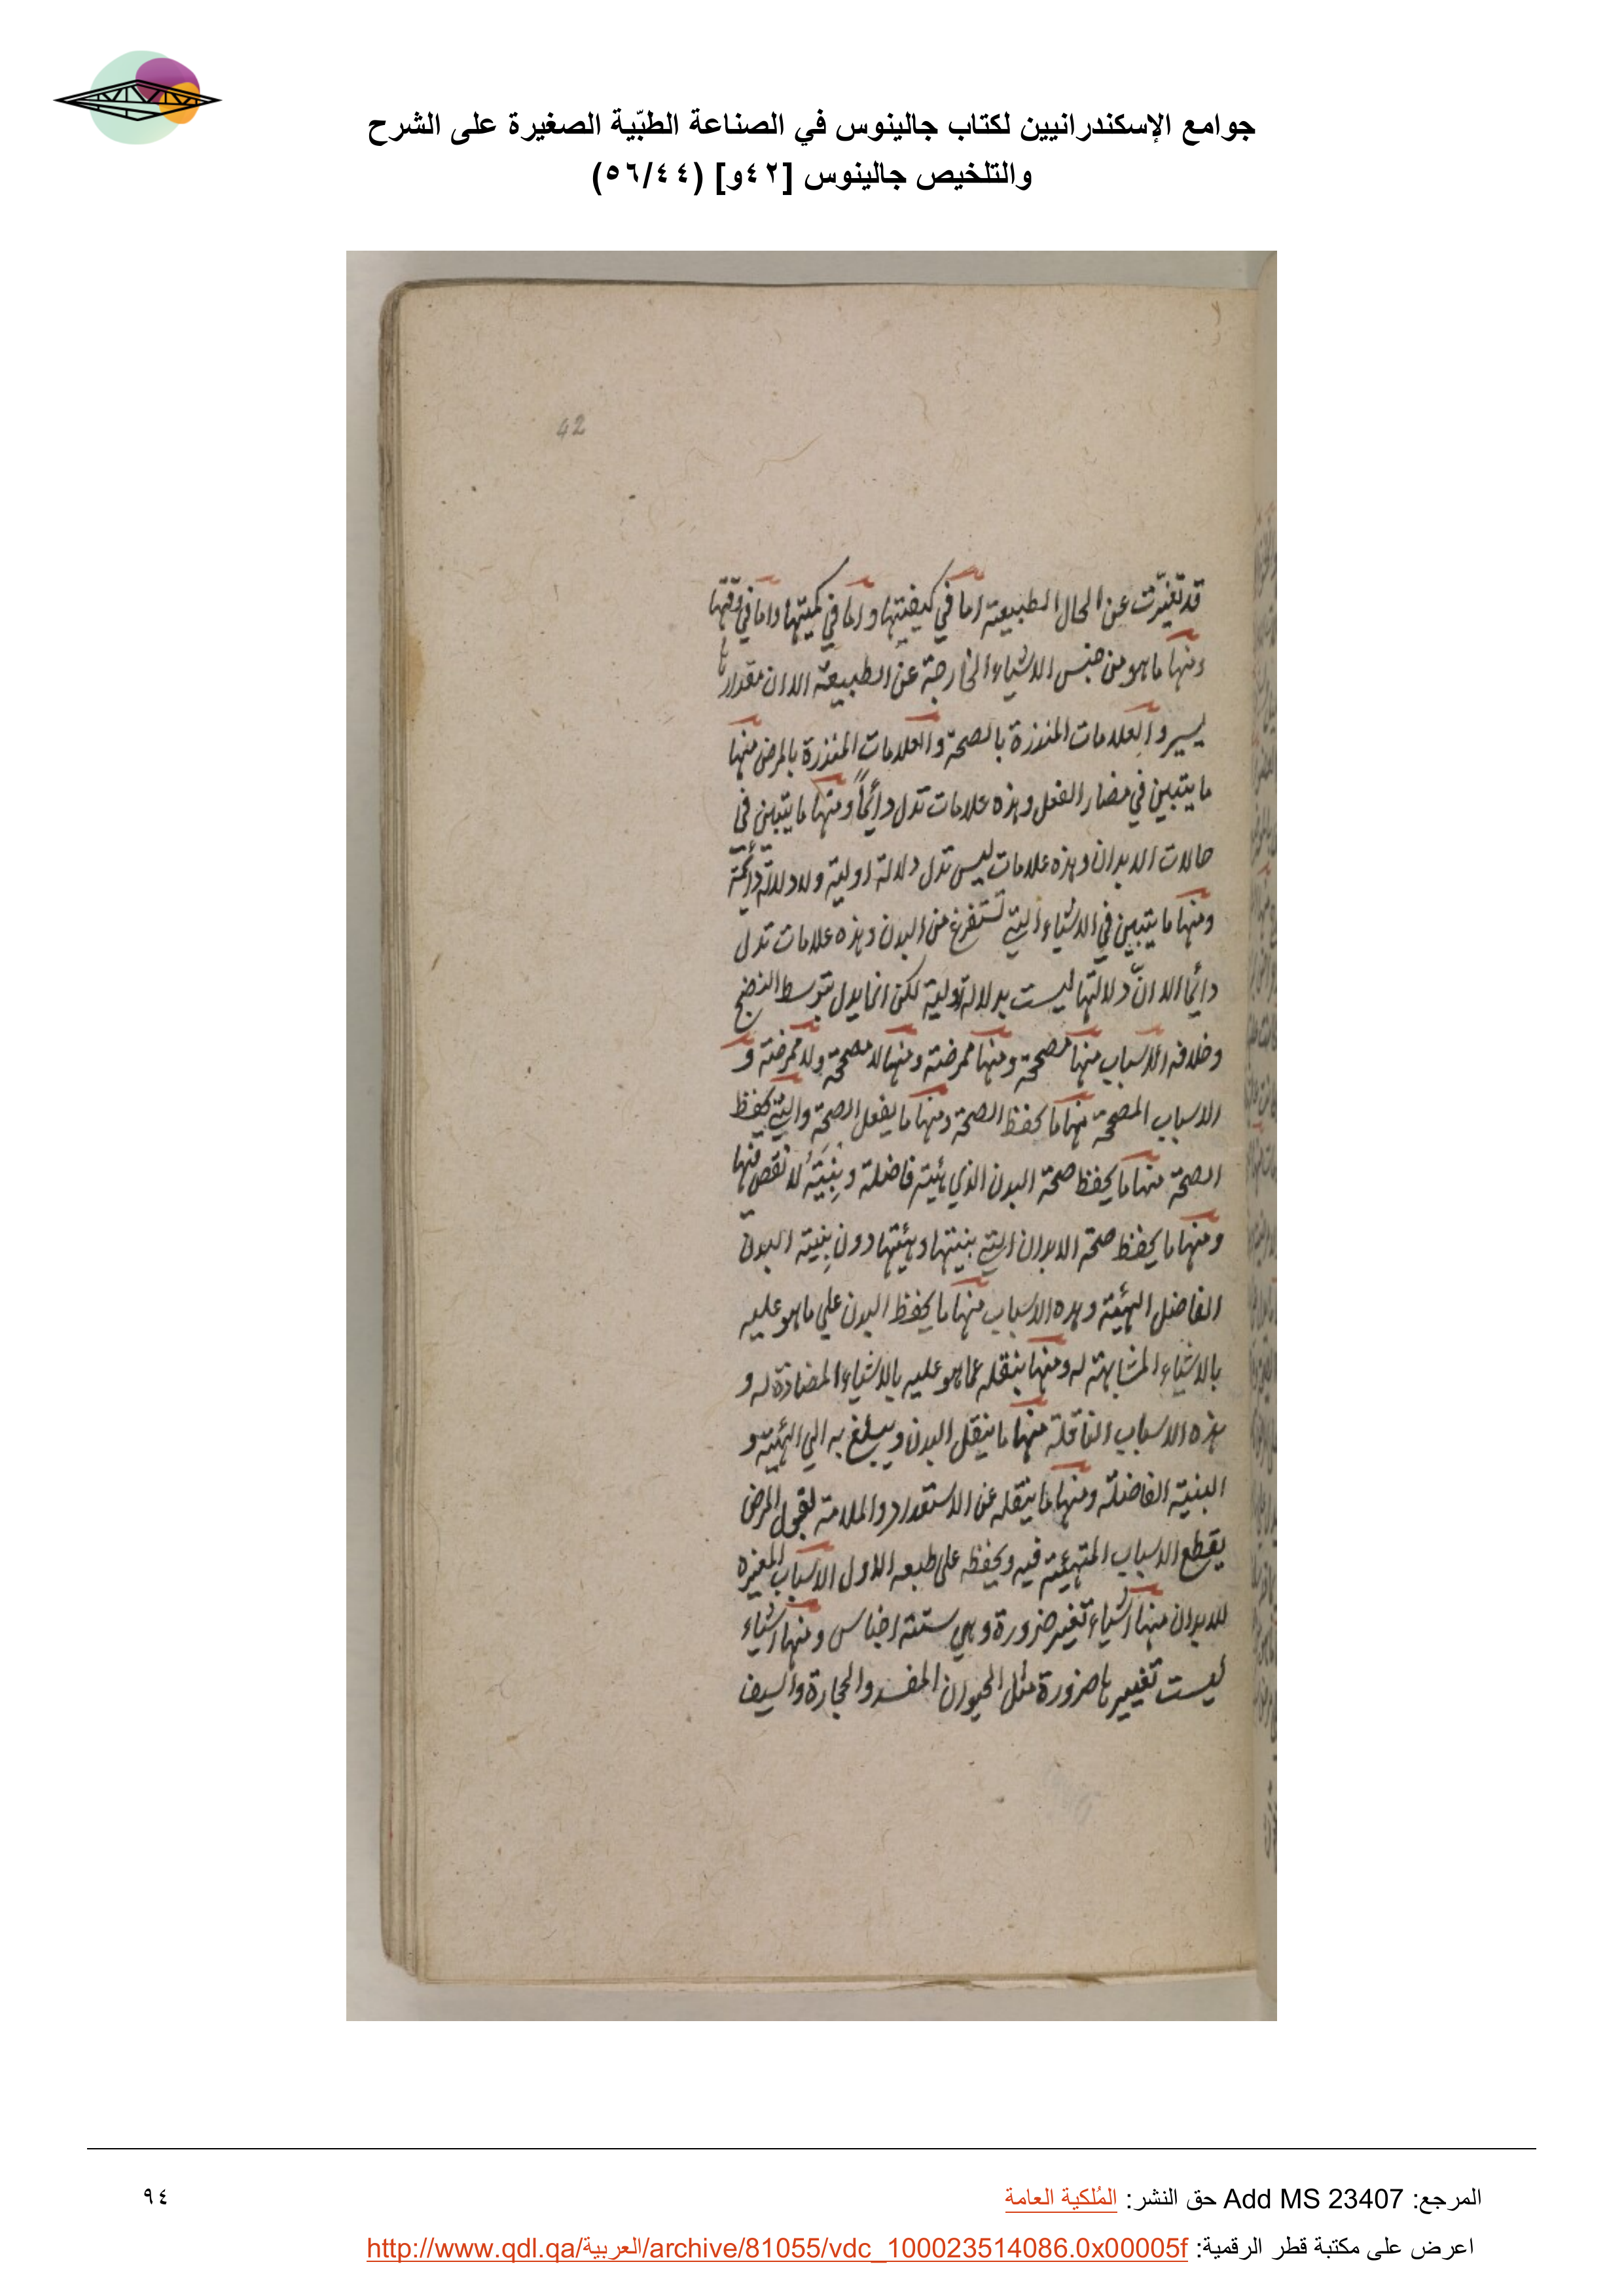 جوامع الإسكندرانيين لكتاب جالينوس في الصناعة الطبّية الصغيرة على الشرح
والتلخيص جالينوس [٤٢و] (٥٦/٤٤)
42
قد تغيّرت عن الحال الطبيعية اما في كيفيتها واما في كميتها واما في وقتها
ومنها ما هو من جنس الاشياء الخارجة عن الطبيعة الا ان مقدارها
يسير والعلامات المنذرة بالصحة والعلامات المنذرة بالمرض منها
ما يتبين في مضار الفعل وهذه علامات تدل دائماً ومنها ما يتبين في
حالات الابدان وهذه علامات ليس تدل دلالة اولية ولا دلالة دائمة
ومنها ما يتبين في الاشياء التي تستفرغ من البدن وهذه علامات تدل
دائما الا انّ دلالتها ليست بدلالة اولية لكن انما يدل بتوسط النضج
وخلافه الاسباب منها مصححة ومنها ممرضة ومنها لا مصححة ولا ممرضة و
الاسباب المصححة منها ما يحفظ الصحة ومنها ما يفعل الصحة والتي يحفظ
الصحة منها ما يحفظ صحة البدن الذي هيئته فاضلة وبِنيَتُه لا نقص فيها
ومنها ما يحفظ صحة الابدان التي بنيتها وهيئتها دون بِنية البدن
الفاضل الهيئة وهذه الاسباب منها ما يحفظ البدن علي ما هو عليه
بالاشياء المشابهة له ومنها ينقله عما هو عليه بالاشياء المضادة له و
هذه الاسباب الناقلة منها ما ينقل البدن ويبلغ به الي الهيئة و
البنية الفاضلة ومنها ما ينقله عن الاستعداد والملامة لقبول المرض
يقطع الاسباب المتهيئة فيه ويحفظه على طبعه الاول الاسباب المغيره
للابدان منها اشياء تغير ضرورة وهي ستة اجناس ومنها اشياء
ليست تغييرها ضرورة مثل الحيوان المفسد والحجارة والسيف
المرجع: Add MS 23407 حق النشر: المُلكية العامة
٩٤
اعرض على مكتبة قطر الرقمية: http://www.qdl.qa/العربية/archive/81055/vdc_100023514086.0x00005f